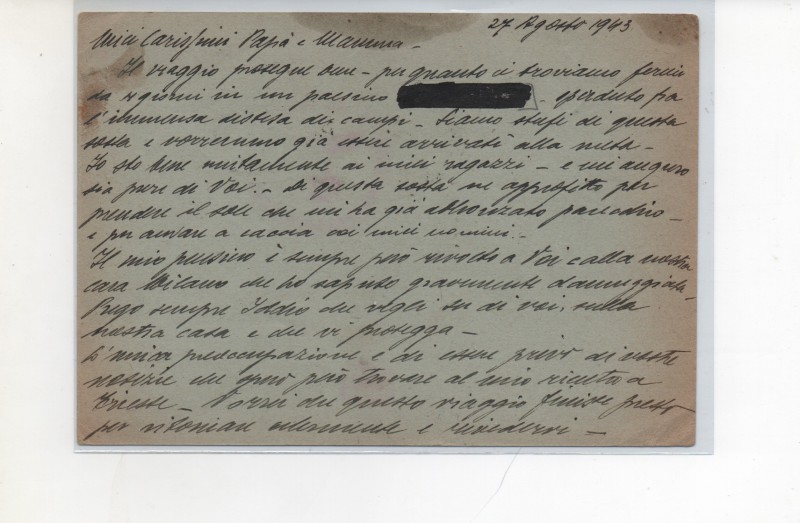 27 Agosto 1943
Miei Carissimi Papà e Mamma -
Il viaggio prosegue bene - per quanto ci troviamo fermi
da 4 giorni in un paesino - sperduto fra
l'immensa distesa dei campi - Siamo stufi di questa
sosta e vorremmo già essere arrivati alla meta -
Io sto bene unitamente ai miei ragazzi - e mi auguro
sia pure di Voi. - Di questa sosta ne approfitto per
prendere il sole che mi ha già abbronzato parecchio -
e per andare a caccia coi miei uomini. -
Il mio pensiero è sempre però rivolto a Voi e alla nostra
cara Milano che ho saputo gravemente danneggiata
Prego sempre Iddio che vegli su di voi, sulla
nostra casa e che vi protegga -
L'unica preoccupazione è di essere privo di vostre
notizie che spero però trovare al mio rientro a
Trieste - Vorrei che questo viaggio finisse presto
per ritornare e rivedervi -